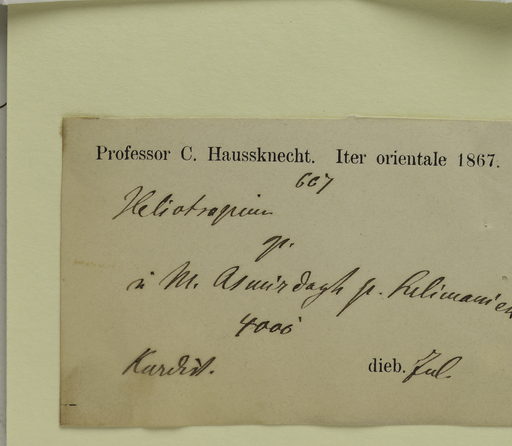 Professor C. Haussknecht. Iter orientale 1867.
667
Heliotropium
sp.
in M. Asmirdagh pr. Sulimanien
4000'
Kurdist.
dieb. Jul.